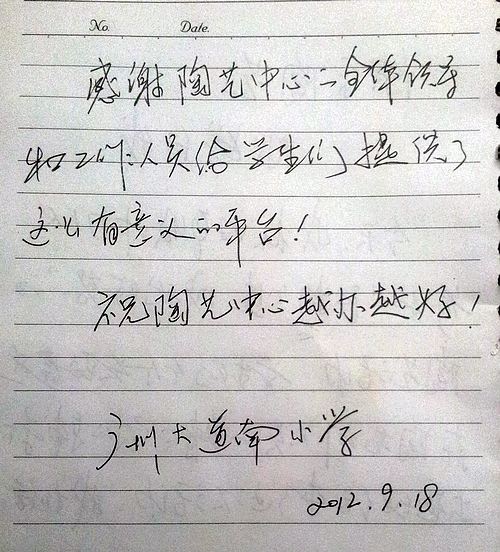 No.   Date.
感谢陶艺中心全体领导
和工作人员给学生们提供了
这么有意义的平台！
祝陶艺中心越办越好！
广州大道南小学
2012.9.18